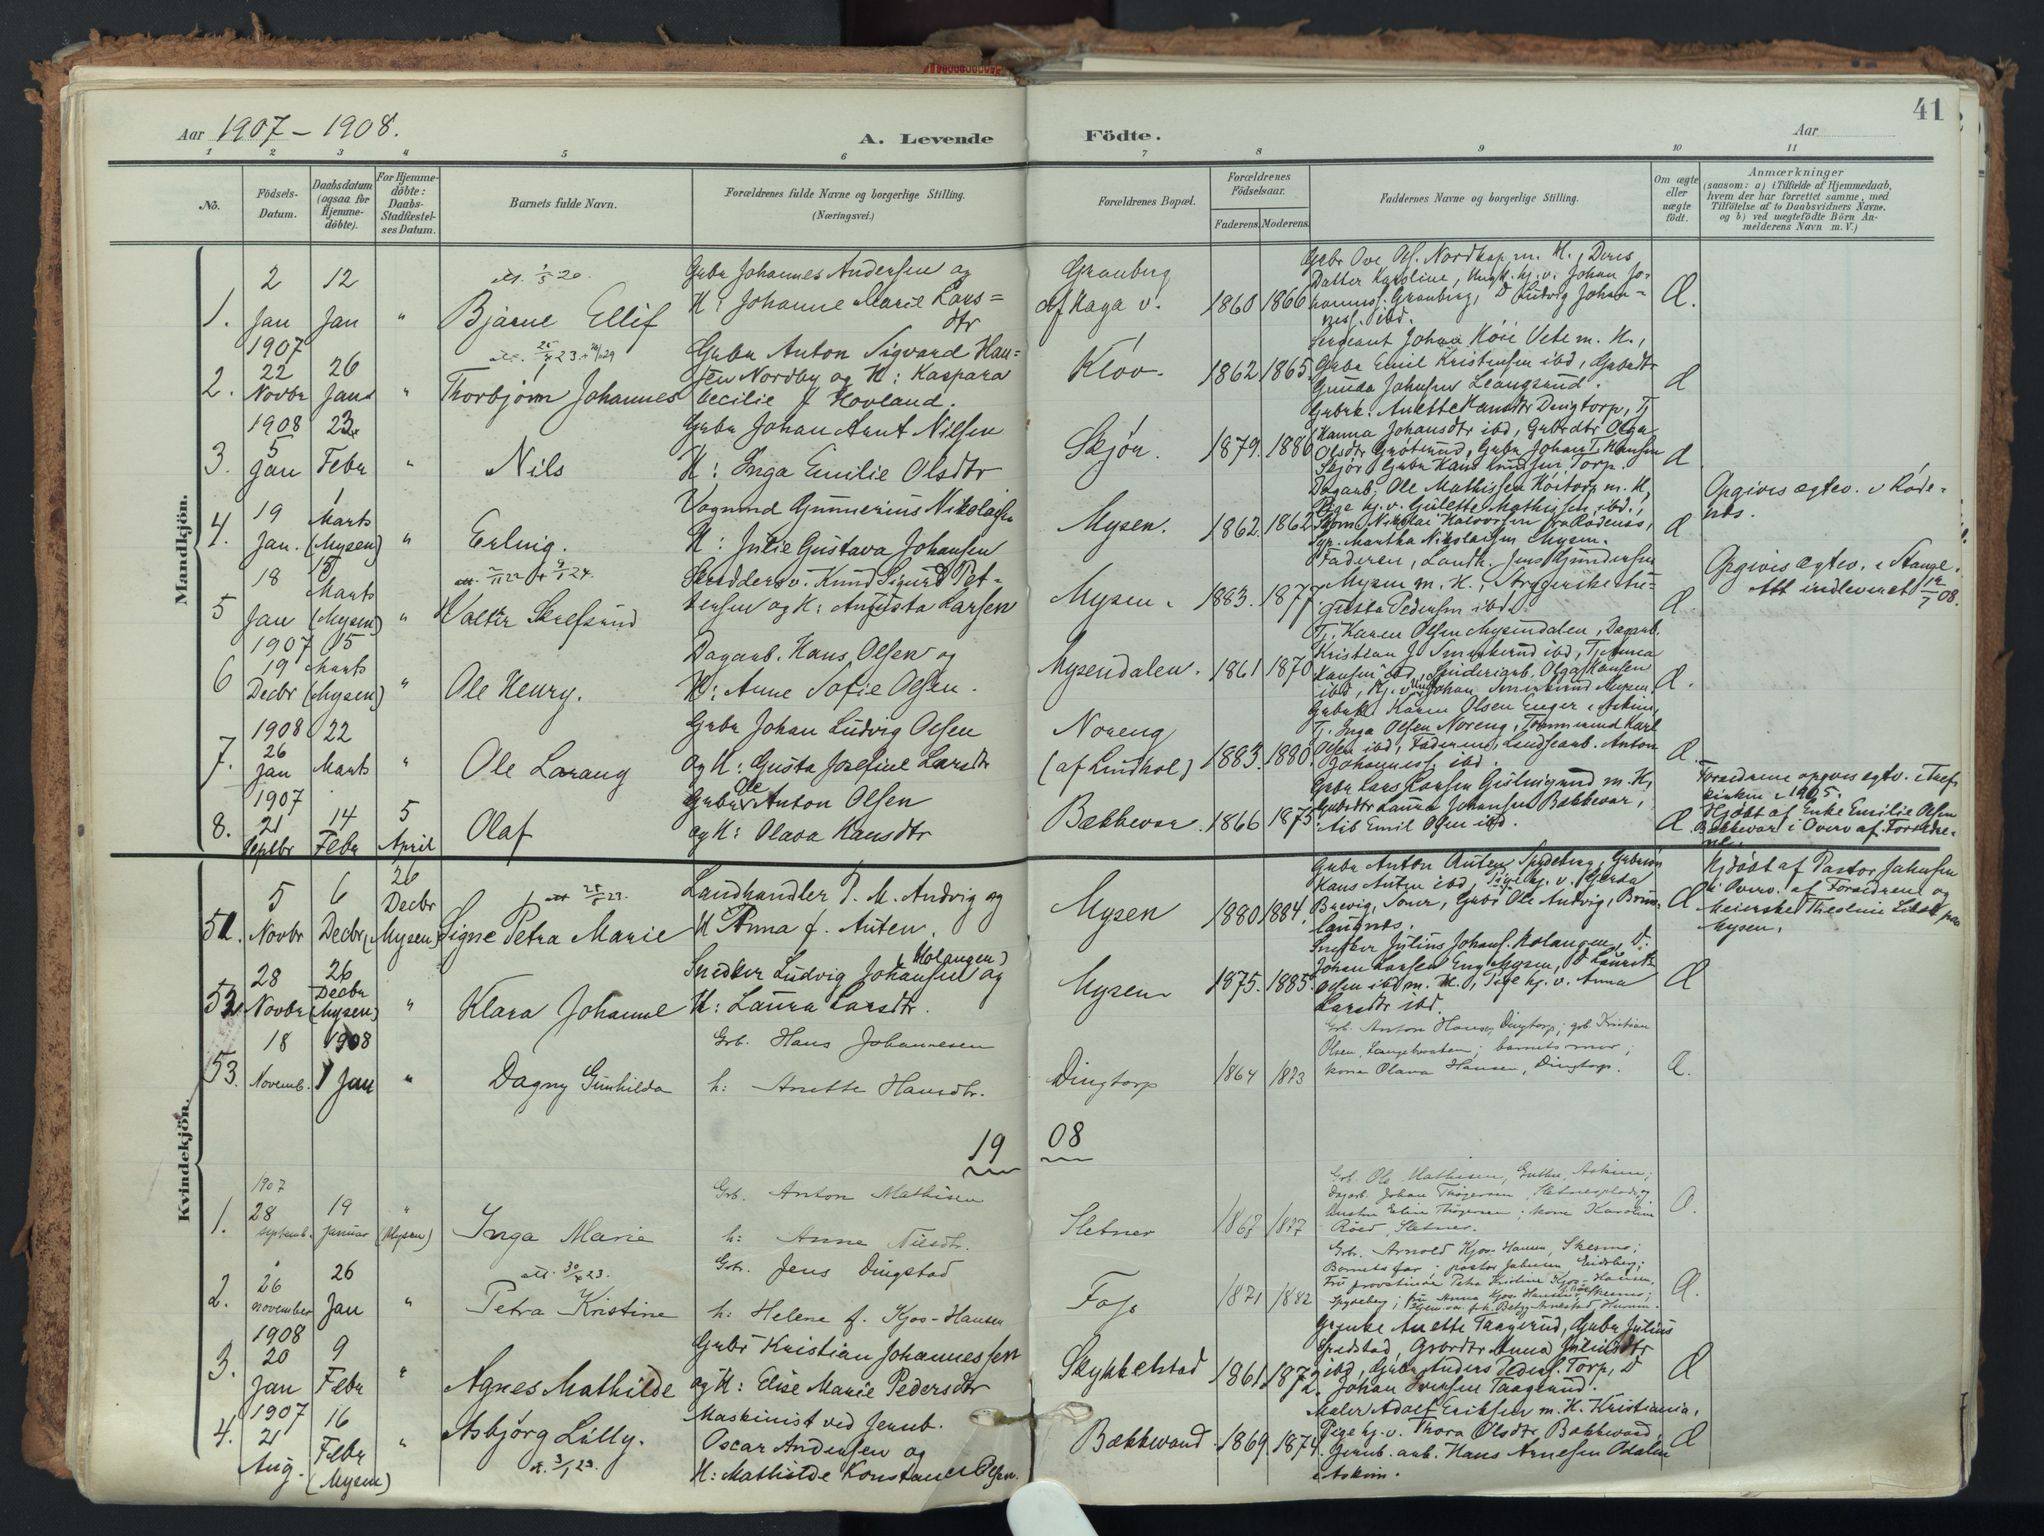 41
Aar 1907 – 1908.
A. Levende Födte.
Aar
1 2 3 4 5 6 7 8 9 10 11
No.
Födsels-Datum.
Daabsdatum (ogsaa for Hjemme-döbte).
For Hjemme-döbte: Daabs-Stadfæstel-ses Datum.
Barnets fulde Navn.
Forældrenes fulde Navne og borgerlige Stilling. (Næringsvei.)
Forældrenes Bopæl.
Forældrenes Födselsaar.
Faderens. Moderens.
Faddernes Navne og borgerlige Stilling.
Om ægte eller uægte födt.
Anmærkninger (saasom: a) i Tilfælde af Hjemmedaab, hvem der har forrettet samme, med Tilföielse af to Daabsvidners Navne, og b) ved uægtefödte Börn An-melderens Navn m. V.)
Mandkjön.
1. 2 Jan 12 Jan " Bjarne Ellif
Gubr Johannes Andersen og
K: Johanne Marie Lars=
dtr
Granberg
af Haga v.
1860 1866
Gubr Ove Ols. Nordkap m. K., Deres
Datter Karoline, Ungk. hj. v. Johan Jo-
hanness. Granberg, D Ludvig Johan-
ness. ibd.
Æ.
2. 1907 22 Novbr 26 Jan " Thorbjørn Johannes
Gubr Anton Sigvard Han=
sen Nordby og K: Kaspara
Cecilie f. Hovland.
Kløv. 1862 1865.
Sergeant Johan Höie Vete m. K.,
Gubr Emil Kristensen ibd, Gubrdtr
Gunda Johnsen Leangsund.
Æ
3. 1908 5 Jan 23 Febr " Nils
Gubr Johan Arnt Nilsen
K: Inga Emilie Olsdtr
Skjør. 1879. 1886
Gubrk. Anette Hansdtr Dingtorp, Tj
Hanna Johansdtr ibd, Gubrdtr Olga
Olsdtr Grøtsund, Gubr Johan T. Hansen
Skjør, Gubr Hans Knudsen Torp.
Æ
4. 19 Jan. 1 Marts (Mysen) " Erling.
Vognmd Gunnerius Nikolaisen
K: Julie Gustava Johansen
Mysen. 1862. 1862
Dagarb. Ole Mathissen Høitorp m. K,
Pige hj. v. Gulette Mathissen ibd.,
Nikolai Halvorsen fra Rødenes,
Syp. Martha Nikolaisen Mysen.
Æ
Opgives ægtev. i Røde-
næs.
5 18 Jan 15 Marts (Mysen) " Valter Skrefsrud
Skredders v. Knud Sigurd Pet-
tersen og K: Augusta Larsen
Mysen. 1883. 1877
Faderen, Landh. Jens Gundersen
Mysen m. K., Strygerske Au-
gusta Pedersen ibd.
Æ.
Opgives ægtev. i Stange.
Att indleveret 12/7 08.
6 1907 19 Decbr 15 Marts (Mysen) " Ole Henry.
Dagarb. Hans Olsen og
K: Anne Sofie Olsen.
Mysendalen. 1861 1870
Tj. Karen Olsen Mysendalen, Dagarb.
Kristian J. Smerkerud ibd, Tj. Anna
Hansen ibd, Spinderiarb. Olga Hansen
ibd, Hj. v. Ungk Johan Smerkerud Mysen.
Æ.
7. 1908 26 Jan 22 Marts " Ole Lorang
Gubr Johan Ludvig Olsen
og K: Gusta Josefine Larsdtr
Noreng
(af Lindhol)
1883. 1880.
Gubrk Karen Olsen Enger i Askim,
T. Inga Olsen Noreng, Tømmermd Karl
Olsen ibd, Faderen, Landsarb. Anton
Johanness. ibd.
Æ.
8. 1907 21 Septbr 14 Febr 5 April Olaf
Gubr Ole Anton Olsen
og K: Olava Hansdtr
Bækkevar. 1866 1875
Gubr Lars Larsen Gislingrud m. K,
Gubrdtr Laura Johansen Bækkevar,
Arb Emil Olsen ibd.
Æ.
Forældrene opgives ægtev. i Tref.
kirken i 1905.
Hjdøbt af Enke Emilie Olsen
Bækkevar i Overv. af Forældre-
ne.
Kvindekjön.
51. 5 Novbr 6 Decbr 26 Decbr (Mysen) Signe Petra Marie
Landhandler P. M. Andvig og
K Anna f. Auten.
Mysen 1880 1884.
Gubr Anton Auten Spydeberg, Gubrsøn
Hans Auten ibd, Pige hj. v. Gerda
Brevig, Soner, Gubr Ole Andvig, Brun-
laugnes.
Æ
Hjdøbt af Pastor Jahnsen
i Overv. af Forældrene og
Meierske Theoline Libæk paa
Mysen.
52 28 Novbr 26 Decbr (Mysen) " Klara Johanne
Snedker Ludvig Johansen (Holangen) og
K: Laura Larsdtr.
Mysen 1875. 1885.
Snedker Julius Johans. Holangen, D.
Johan Larsen Eng Mysen, D Laurits
Olsen ibd m. K., Pige hj. v. Anna
Larsdtr ibd.
Æ
53. 18 Novemb. 1908 1 Jan " Dagny Gunhilda
Grb. Hans Johannesen
h: Anette Hansdtr.
Dingtorp 1864 1873
Grb. Anton Hansen, Dingtorp; grb. Kristian
Olsen, Langebraaten; barnets mor;
kone Olava Hansen, Dingtorp.
Æ.
19 08
1. 1907 28 septemb. 19 januar " (Mysen) Inga Marie
Grb. Anton Mathisen
h: Anne Nilsdtr.
Sletner 1867 1877
Grb. Ole Mathisen, Guthu, Askim;
Dagarb. Johan Thøgersen, Sletnerpladsen,
hustru Eline Thøgersen; kone Karoline
Røed, Sletner.
Æ.
2. 26 november 26 Jan " Petra Kristine
Grb. Jens Dingstad
h: Helene f. Kjos-Hansen
Foss 1871 1882
Grb. Arnold Kjos-Hansen, Skesmo;
Barnets far; pastor Jahnsen, Eidsberg;
Fru provstinde Petra Kristine Kjos-Hansen,
Spydeberg; frk Anna Kjos-Hansen, Skesmo;
Æ.
3. 1908 20 Jan 9 Febr " Agnes Mathilde
Gubr Kristian Johannessen
og K: Elise Marie Pedersdtr
Skykkelstad 1861. 1872.
Grenke Anette Taagerud, Gubr Julius
Spædstad, Grbrdtr Anna Juliusdtr
ibd, Gubr Anders Peders. Torp, D
Johan Iversen Taagerud.
Æ
4. 1907 21 Aug. 16 Febr (Mysen) " Asbjörg Lilly.
Maskinist ved Jernb.
Oscar Andersen og
K: Mathilde Konstance Olsen.
Bækkevand. 1869. 1874.
Maler Adolf Eriksen m. K. Kristiania,
Pige hj. v. Thora Olsdtr Bækkevand,
Jernb. arb. Hans Arnesen Odalen
i Askim.
Æ